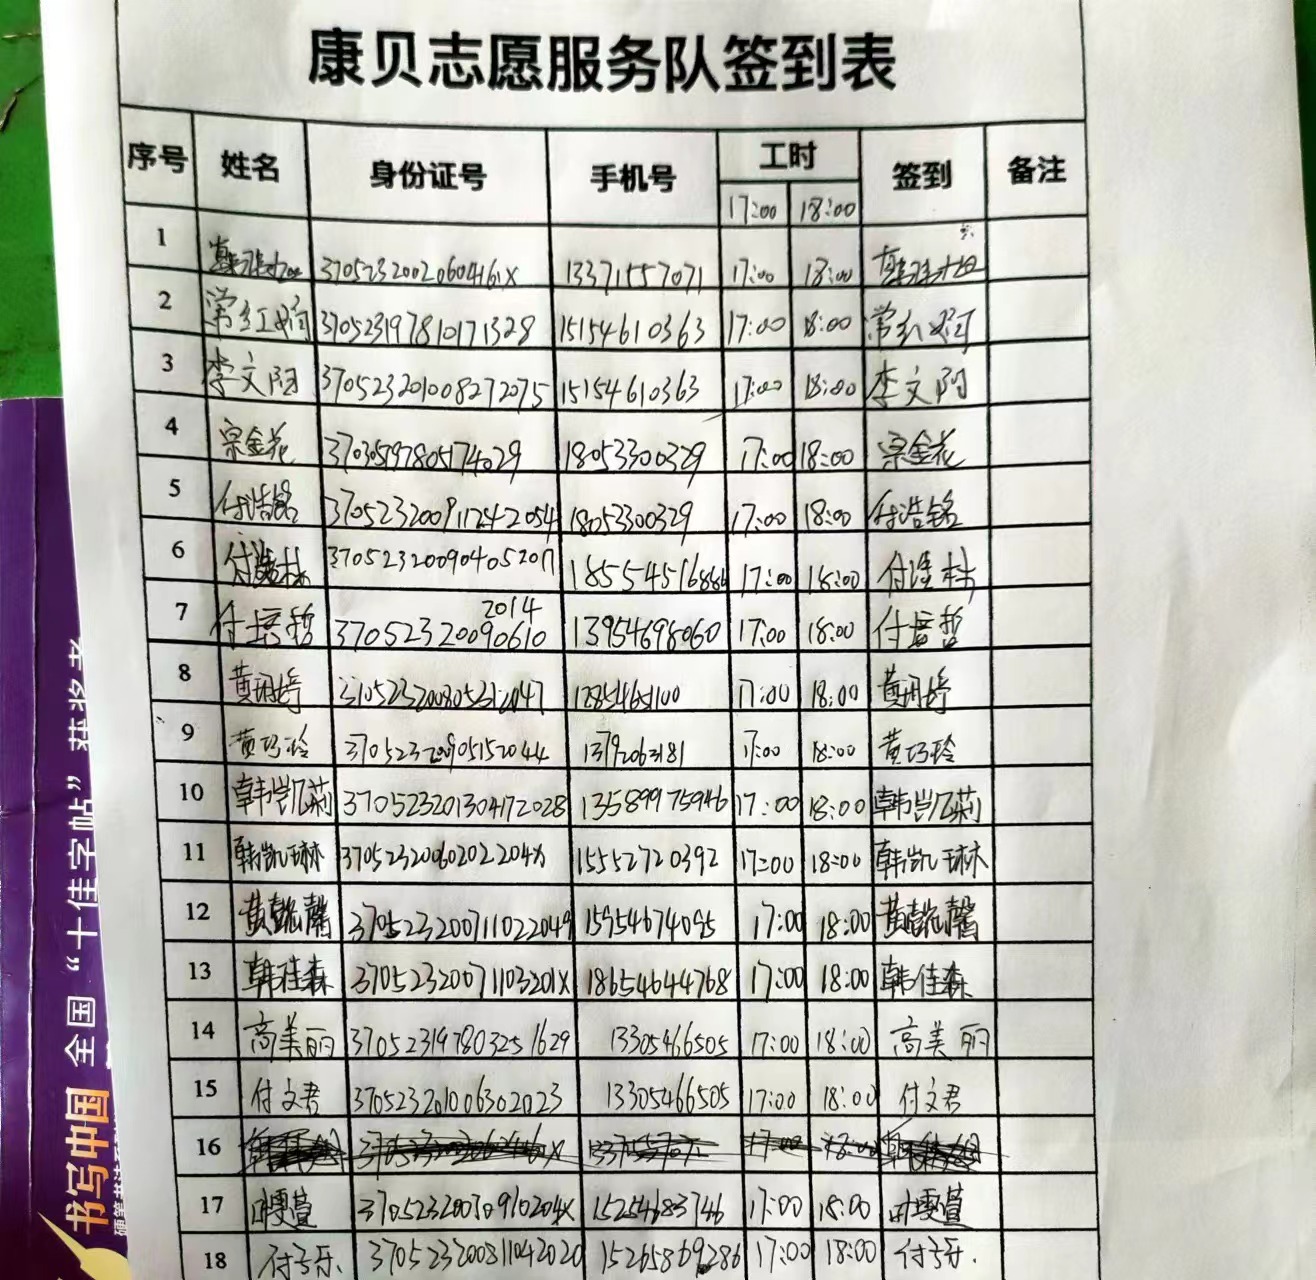 康贝志愿服务队签到表
序号 姓名 身份证号 手机号 工时 签到 备注
17:00 18:00
1 37052320020604161X 13371557071 17:00 18:00
2 常红娟 370523197810171328 15154610363 17:00 18:00 常红娟
3 李文阳 370523201008272075 15154610363 17:00 18:00 李文阳
4 宗金花 370305197805174029 18053300329 17:00 18:00 宗金花
5 付浩铭 18053300329 17:00 18:00 付浩铭
6 370523200904052011 18554516886 17:00 18:00
7 付培哲 3705232009061020​14 13954698060 17:00 18:00 付培哲
8 17:00 18:00
9 黄巧玲 370523200905152044 17:00 18:00 黄巧玲
10 韩凯莉 370523201304172028 13589975946 17:00 18:00 韩凯莉
11 韩凯琳 37052320060202204X 15552720392 17:00 18:00 韩凯琳
12 370523200711022049 15954674095 17:00 18:00
13 韩佳森 37052320071103201X 18654644768 17:00 18:00 韩佳森
14 高美丽 370523197803251629 13305466505 17:00 18:00 高美丽
15 付文君 370523201006302023 13305466505 17:00 18:00 付文君
16
17 15254683746 17:00 18:00
18 370523200811042020 15265869286 17:00 18:00
书写中国 全国“十佳字帖”获奖者